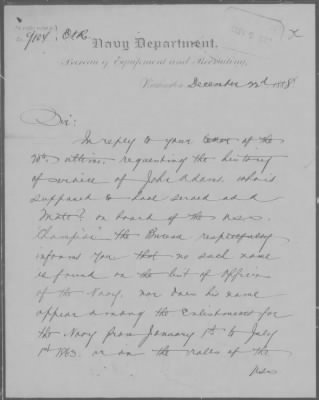 9104 C.E.R.
Navy Department,
Bureau of Equipment and Recruiting,
Washington December 22d, 188
Sir:
In reply to your letter of the
20th ultimo, requesting the history
of service of John Adams who is
supposed to have served as a
Mate on board of the U.S.S.
"Champion" the Bureau respectfully
informs you that no such name
is found on the list of Officers
of the Navy, nor does his name
appear among the Enlistments for
the Navy from January 1st to July
1st 1863, or on the rolls of the